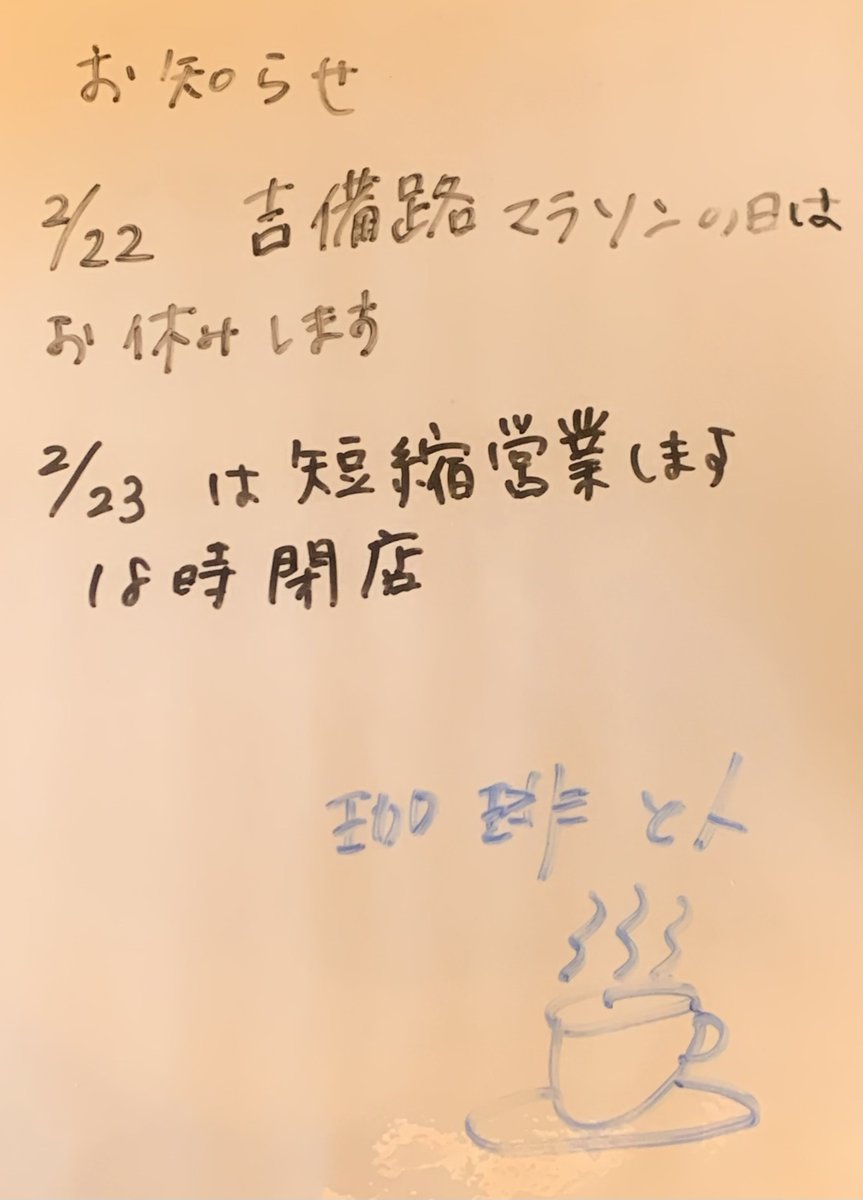 お知らせ
2/22 吉備路マラソンの日は
お休みします
2/23 は短縮営業します
18時閉店
珈琲と人